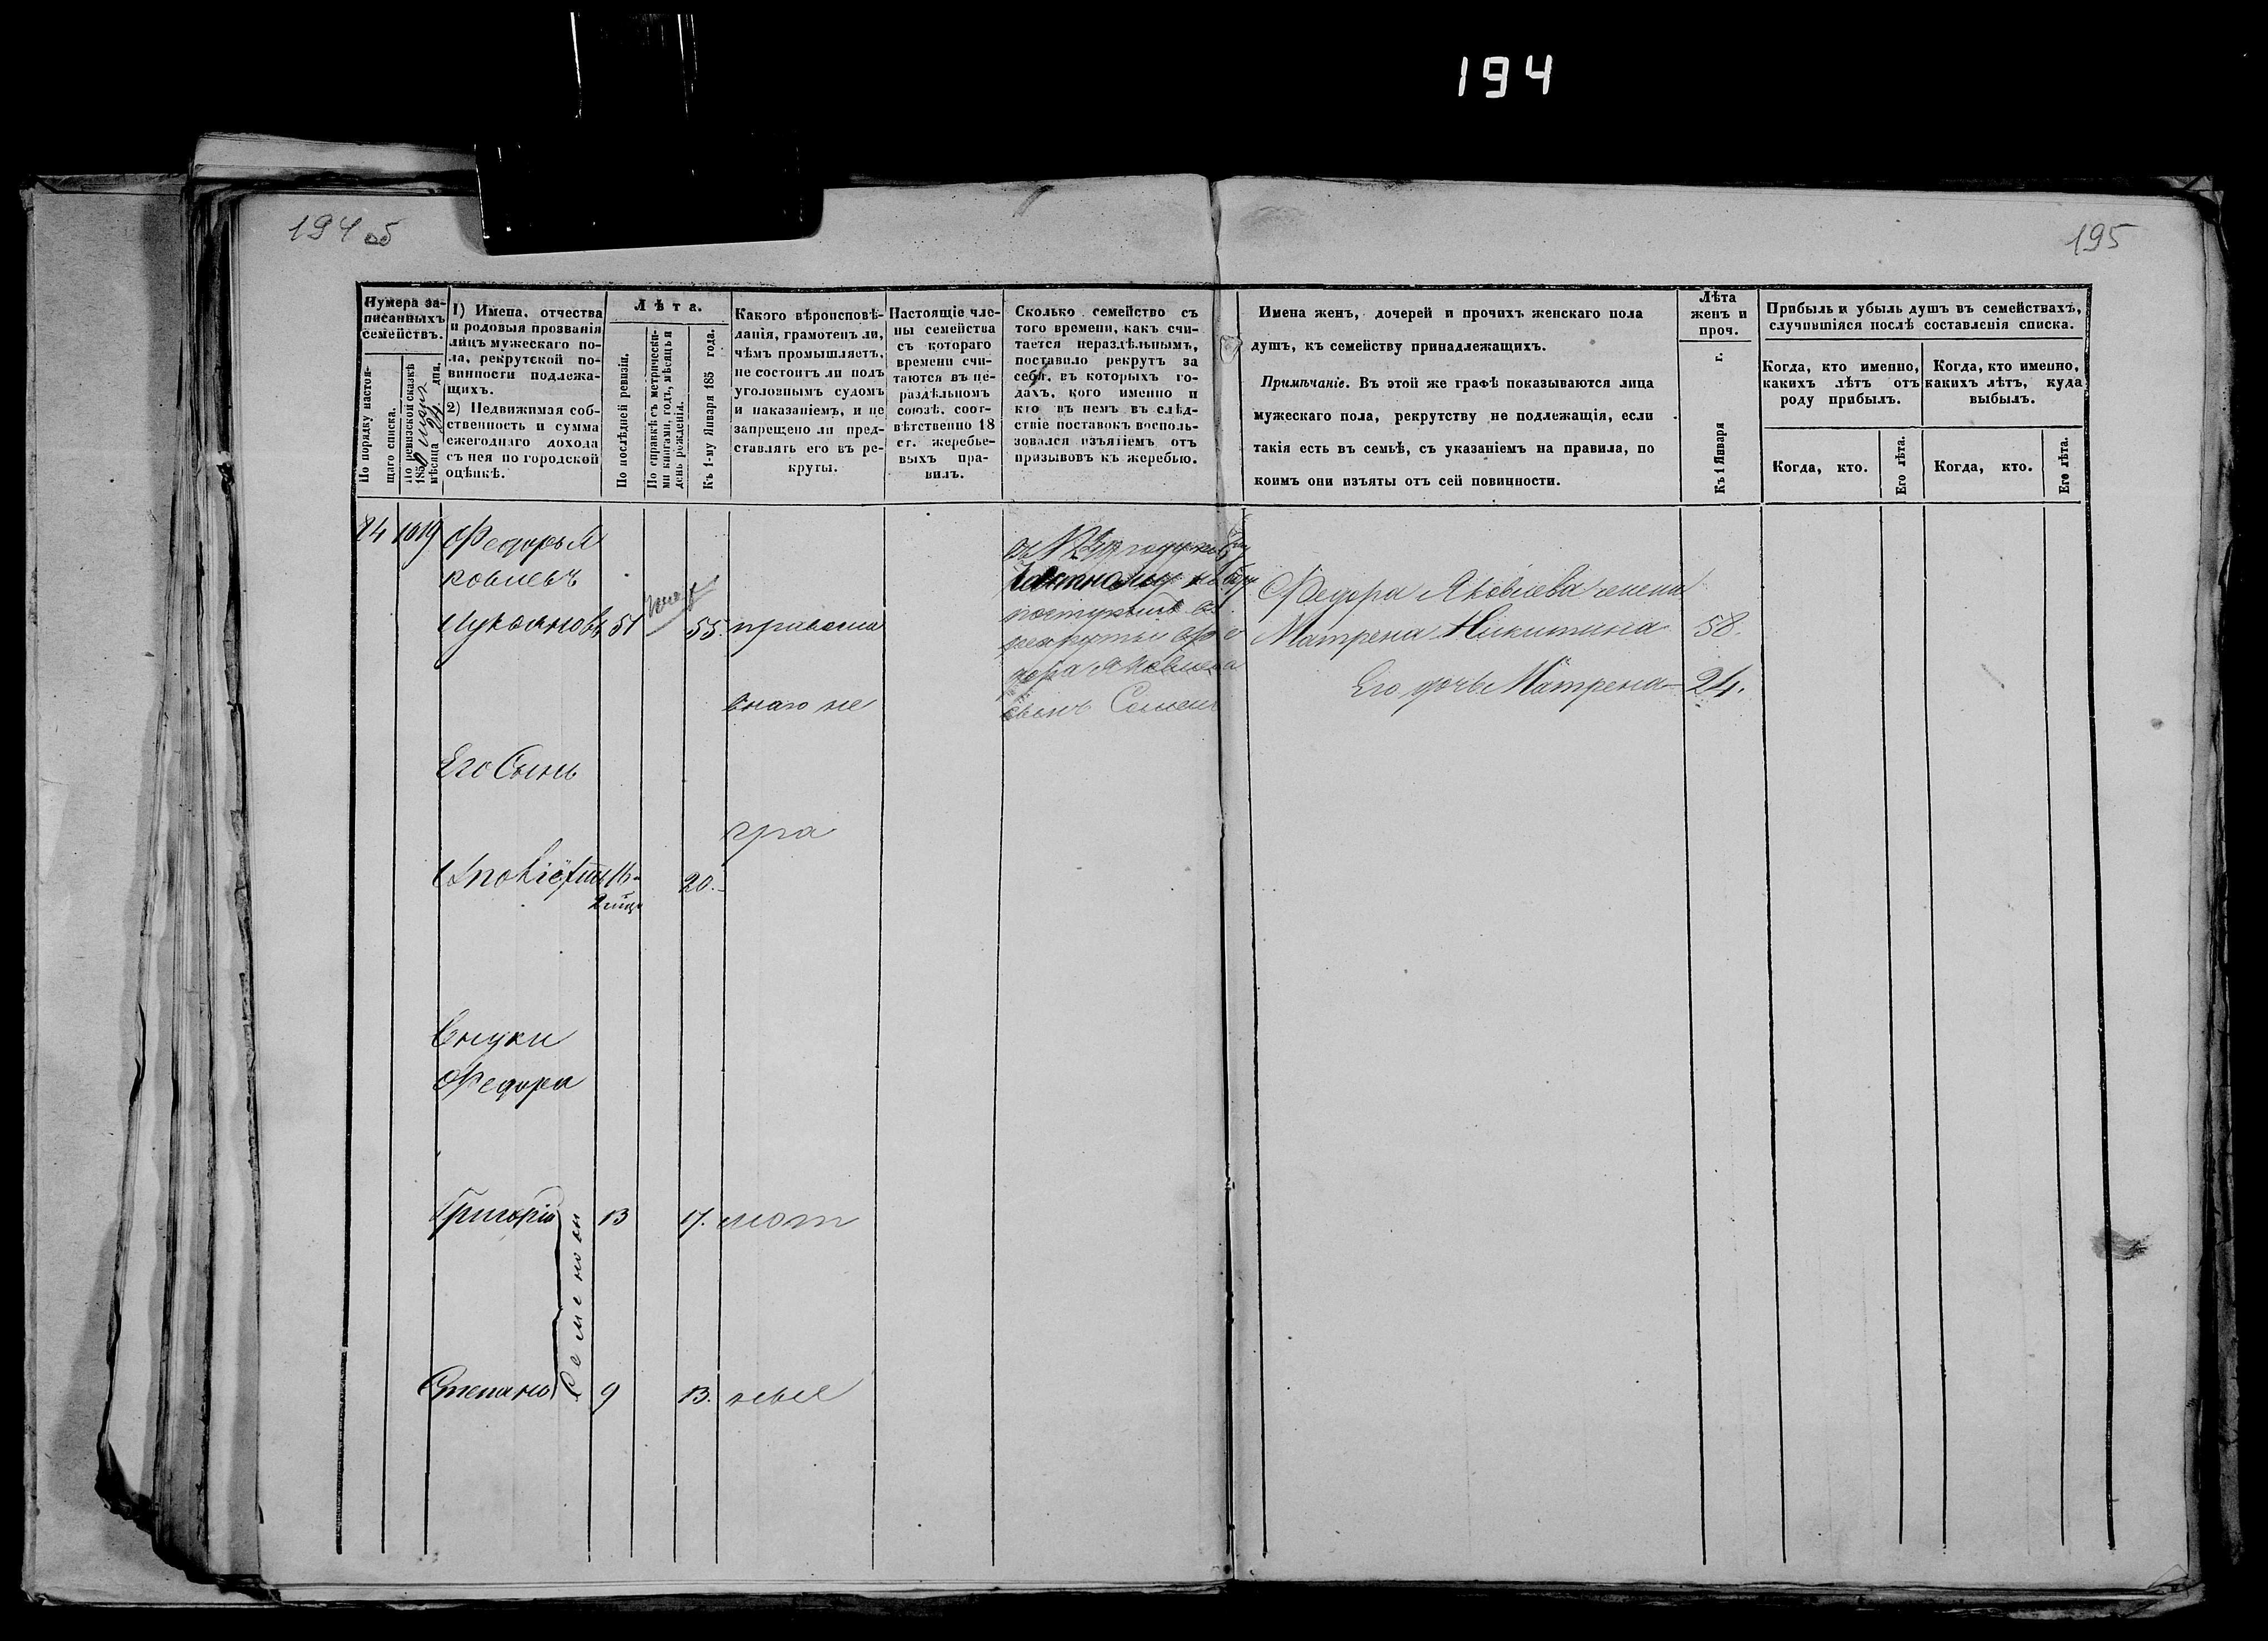 194
194 об
195
Нумера записанныхъ семействъ.
По порядку настоящаго списка.
По ревизской сказкѣ 185 мѣсяца дня.
1) Имена, отчества
и родовыя прозванія
лицъ мужескаго по-
ла, рекрутской по-
винности подлежа-
щихъ.
2) Недвижимая соб-
ственность и сумма
ежегоднаго дохода
съ нея по городской
оцѣнкѣ.
Лѣта.
По послѣдней ревизіи.
По справкѣ съ метрически-
ми книгами, годъ, мѣсяцъ и
день рожденія.
Къ 1-му Января 185 года.
Какого вѣроисповѣ-
данія, грамотенъ ли,
чѣмъ промышляетъ,
не состоитъ ли подъ
уголовнымъ судомъ
и наказаніемъ, и не
запрещено ли пред-
ставлять его въ ре-
круты.
Настоящіе чле-
ны семейства
съ котораго
времени счи-
таются въ не-
раздѣльномъ
союзѣ, соот-
вѣтственно 18
ст. жеребье-
выхъ пра-
вилъ.
Сколько семейство съ
того времени, какъ счи-
тается нераздѣльнымъ,
поставило рекрутъ за
себя, въ которыхъ го-
дахъ, кого именно и
кто въ немъ въ слѣд-
ствіе поставокъ восполь-
зовался изъятіемъ отъ
призывовъ къ жеребью.
Имена женъ, дочерей и прочихъ женскаго пола
душъ, къ семейству принадлежащихъ.
Примѣчаніе. Въ этой же графѣ показываются лица
мужескаго пола, рекрутству не подлежащія, если
такія есть въ семьѣ, съ указаніемъ на правила, по
коимъ они изъяты отъ сей повинности.
Лѣта
женъ и
проч.
Къ 1 Января г.
Прибыль и убыль душъ въ семействахъ,
случившіяся послѣ составленія списка.
Когда, кто именно,
какихъ лѣтъ отъ
роду прибылъ.
Когда, кто именно,
какихъ лѣтъ, куда
выбылъ.
Когда, кто.
Его лѣта.
Когда, кто.
Его лѣта.
24 1019 Федоръ Я
ковлевъ
Лукьяновъ 51 55. правосла
внаго не
Его Сынъ
гра
20.
Внуки
Федора
Григорій 13 17. мот
Семеновы
Степанъ 9 13. ные
поступилъ въ
рекруты Фе
дора Яковлева
сынъ Семенъ
Федора Яковлева жена
Матрена Никитина 58.
Его дочь Матрена 24.